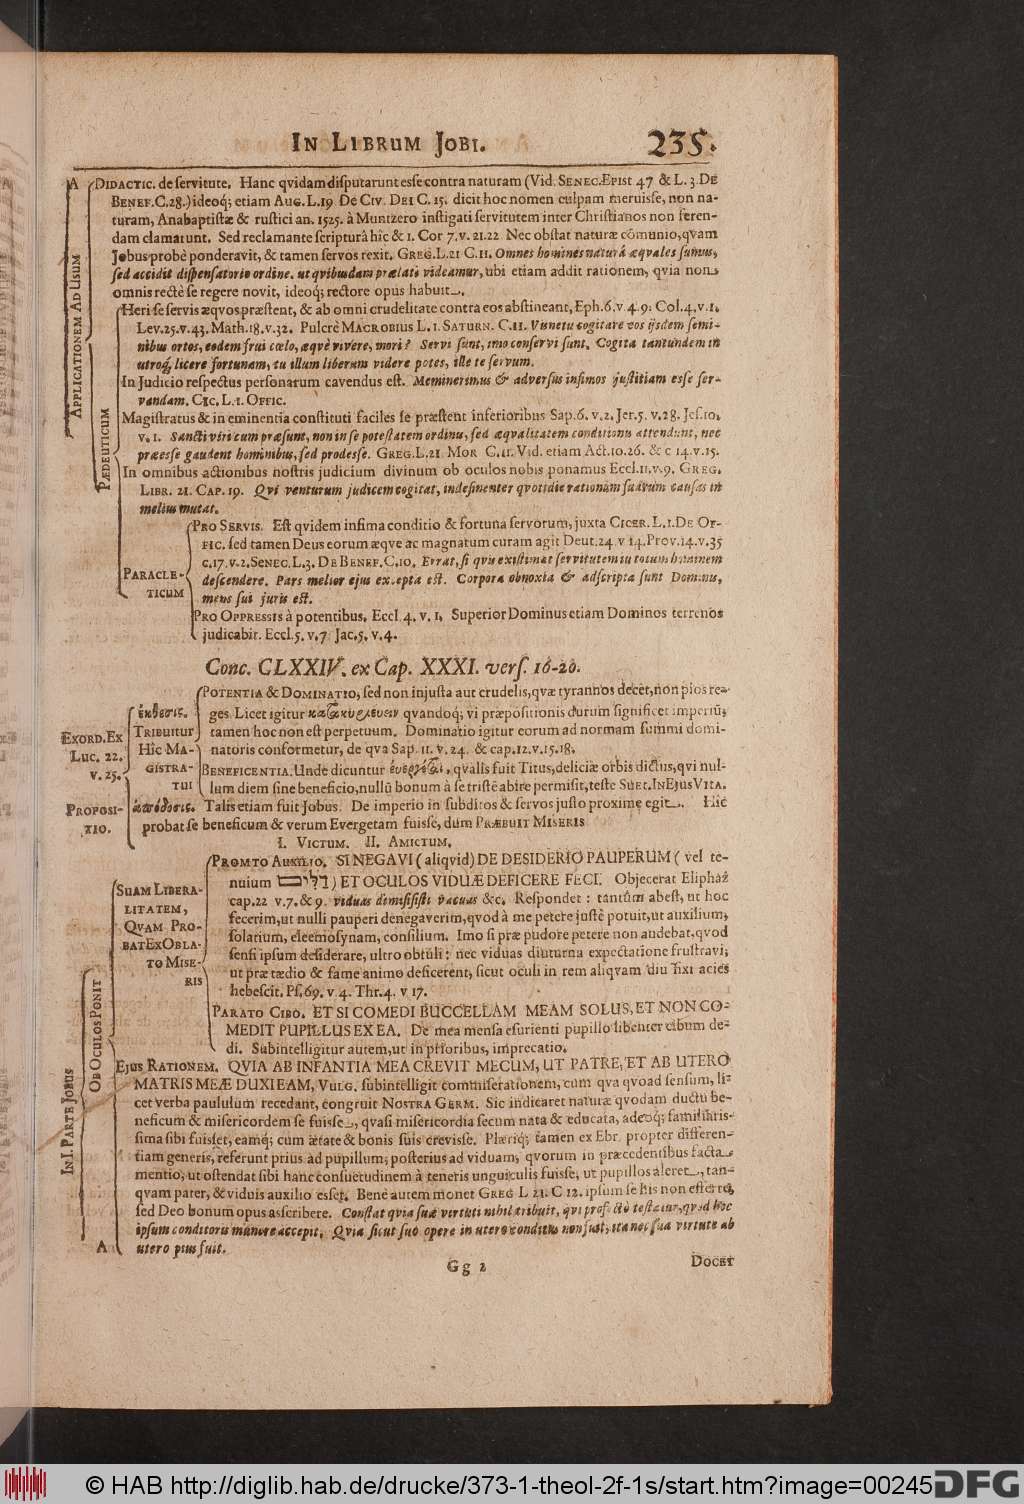 IN LIBRUM JOBI. 235.
A DIDACTIC. de servitute. Hanc qvidam disputarunt esse contra naturam (Vid. SENEC. EPIST 47 & L. 3. DE
BENEF. C. 28.) ideoq; etiam AUG. L. 19 DE CIV. DEI C. 15. dicit hoc nomen culpam meruisse, non na-
turam, Anabaptistæ & rustici an. 1525. à Muntzero instigati servitutem inter Christianos non feren-
dam clamarunt. Sed reclamante scripturâ hîc & 1. Cor 7. v. 21. 22 Nec obstat naturæ cõmunio, qvam
Jobus probè ponderavit, & tamen servos rexit. GREG. L. 21 C. 11. Omnes homines naturâ æqvales sumus,
sed accidit dispensatorio ordine, ut qvibusdam prælati videamur, ubi etiam addit rationem, qvia non
omnis rectè se regere novit, ideoq; rectore opus habuit.
APPLICATIONEM AD USUM
PÆDEUTICUM
Heri se servis æqvos præstent, & ab omni crudelitate contra eos abstineant, Eph. 6. v 4. 9. Col. 4. v. 1.
Lev. 25. v. 43. Math. 18. v. 32. Pulcrè MACROBIUS L. 1. SATURN. C. 11. Visne tu cogitare eos ijsdem semi-
nibus ortos, eodem frui cœlo, æqvè vivere, mori? Servi sunt, imo conservi sunt. Cogita tantundem in
utroq, licere fortunam, tu illum liberum videre potes, ille te servum.
In Judicio respectus personarum cavendus est. Meminerimus & adversus infimos justitiam esse ser-
vandam. CIC. L. 1. OFFIC.
Magistratus & in eminentia constituti faciles se præstent inferioribus Sap. 6. v. 2. Jer. 5. v. 28. Jes. 10.
v. 1. Sancti viri cum præsunt, non in se potestatem ordinis, sed æqvalitatem conditionis attendunt, nec
præesse gaudent hominibus, sed prodesse. GREG. L. 21. MOR C. 11. Vid. etiam Act. 10. 26. & c 14. v. 15.
In omnibus actionibus nostris judicium divinum ob oculos nobis ponamus Eccl. 11. v. 9. GREG.
LIBR. 21. CAP. 19. Qvi venturum judicem cogitat, indesinenter qvotidie rationum suarum causas in
melius mutat.
PARACLE-
TICUM
PRO SERVIS. Est qvidem infima conditio & fortuna servorum, juxta CICER. L. 1. DE OF-
FIC. sed tamen Deus eorum æqve ac magnatum curam agit Deut. 24 v 14. Prov. 14. v. 35
c. 17. v. 2. SENEC. L. 3. DE BENEF. C. 10. Errat, si qvis existimat servitutem in totum hominem
descendere. Pars melior ejus excepta est. Corpora obnoxia & adscripta sunt Dominis,
mens sui juris est.
PRO OPPRESSIS à potentibus. Eccl 4. v. 1. Superior Dominus etiam Dominos terrenos
judicabit. Eccl. 5. v. 7. Jac. 5. v. 4.
Conc. CLXXIV. ex Cap. XXXI. vers. 16-20.
EXORD. EX
Luc. 22.
v. 25.
ἔκθεσις.
TRIBUITUR
HÎC MA-
GISTRA-
TUI
POTENTIA & DOMINATIO, sed non injusta aut crudelis, qvæ tyrannos decet, non pios re-
ges. Licet igitur κατακυριεύειν qvandoq; vi præpositionis durum significet imperiũ,
tamen hoc non est perpetuum. Dominatio igitur eorum ad normam summi domi-
natoris conformetur, de qva Sap. 11. v. 24. & cap. 12. v. 15. 18.
BENEFICENTIA. Unde dicuntur ἐυεργέται, qvalis fuit Titus, deliciæ orbis dictus, qvi nul-
lum diem sine beneficio, nullũ bonum à se tristẽ abire permisit, teste SUET. IN EJUS VITA.
PROPOSI-
TIO.
ἀπόδοσις. Talis etiam fuit Jobus. De imperio in subditos & servos justo proxime egit. Hîc
probat se beneficum & verum Evergetam fuisse, dum PRÆBUIT MISERIS
I. VICTUM. II. AMICTUM.
IN I. PARTE JOBUS
OB OCULOS PONIT
SUAM LIBERA-
LITATEM,
QVAM PRO-
BAT EX OBLA-
TO MISE-
RIS
PROMTO AUXILIO. SI NEGAVI (aliqvid) DE DESIDERIO PAUPERUM (vel te-
nuium דלים) ET OCULOS VIDUÆ DEFICERE FECI. Objecerat Eliphaz
cap. 22 v. 7. & 9. viduas dimisisisti vacuas &c. Respondet: tantũm abest, ut hoc
fecerim, ut nulli pauperi denegaverim, qvod à me petere justè potuit, ut auxilium,
solatium, eleemosynam, consilium. Imo si præ pudore petere non audebat, qvod
sensi ipsum desiderare, ultro obtuli: nec viduas diuturna expectatione frustravi,
ut præ tædio & fame animo deficerent, sicut oculi in rem aliqvam diu fixi acies
hebescit. Ps. 69. v. 4. Thr. 4. v 17.
PARATO CIBO. ET SI COMEDI BUCCELLAM MEAM SOLUS, ET NON CO-
MEDIT PUPILLUS EX EA. De mea mensa esurienti pupillo libenter cibum de-
di. Subintelligitur autem, ut in prioribus, imprecatio.
EJUS RATIONEM. QVIA AB INFANTIA MEA CREVIT MECUM, UT PATRE, ET AB UTERO
MATRIS MEÆ DUXI EAM, VULG. subintelligit commiserationem, cum qva qvoad sensum, li-
cet verba paululum recedant, congruit NOSTRA GERM. Sic indicaret naturæ qvodam ductu be-
neficum & misericordem se fuisse, qvasi misericordia secum nata & educata, adeoq; familiaris-
sima sibi fuisset, eamq; cum ætate & bonis suis crevisse. Plæriq; tamen ex Ebr. propter differen-
tiam generis, referunt prius ad pupillum; posterius ad viduam; qvorum in præcedentibus facta
mentio; ut ostendat sibi hanc consuetudinem à teneris unguiculis fuisse, ut pupillos aleret, tan-
qvam pater, & viduis auxilio esset. Bene autem monet GREG L 21. C 12. ipsum se his non efferre,
sed Deo bonum opus asscribere. Constat qvia suæ virtuti nihil tribuit, qvi profectò testatur, qvod hoc
ipsum conditoris munere accepit. Qvia sicut suo opere in utero conditus non fuit, ita nec sua virtute ab
A utero pius fuit.
Gg 2 DOCET
© HAB http://diglib.hab.de/drucke/373-1-theol-2f-1s/start.htm?image=00245 DFG